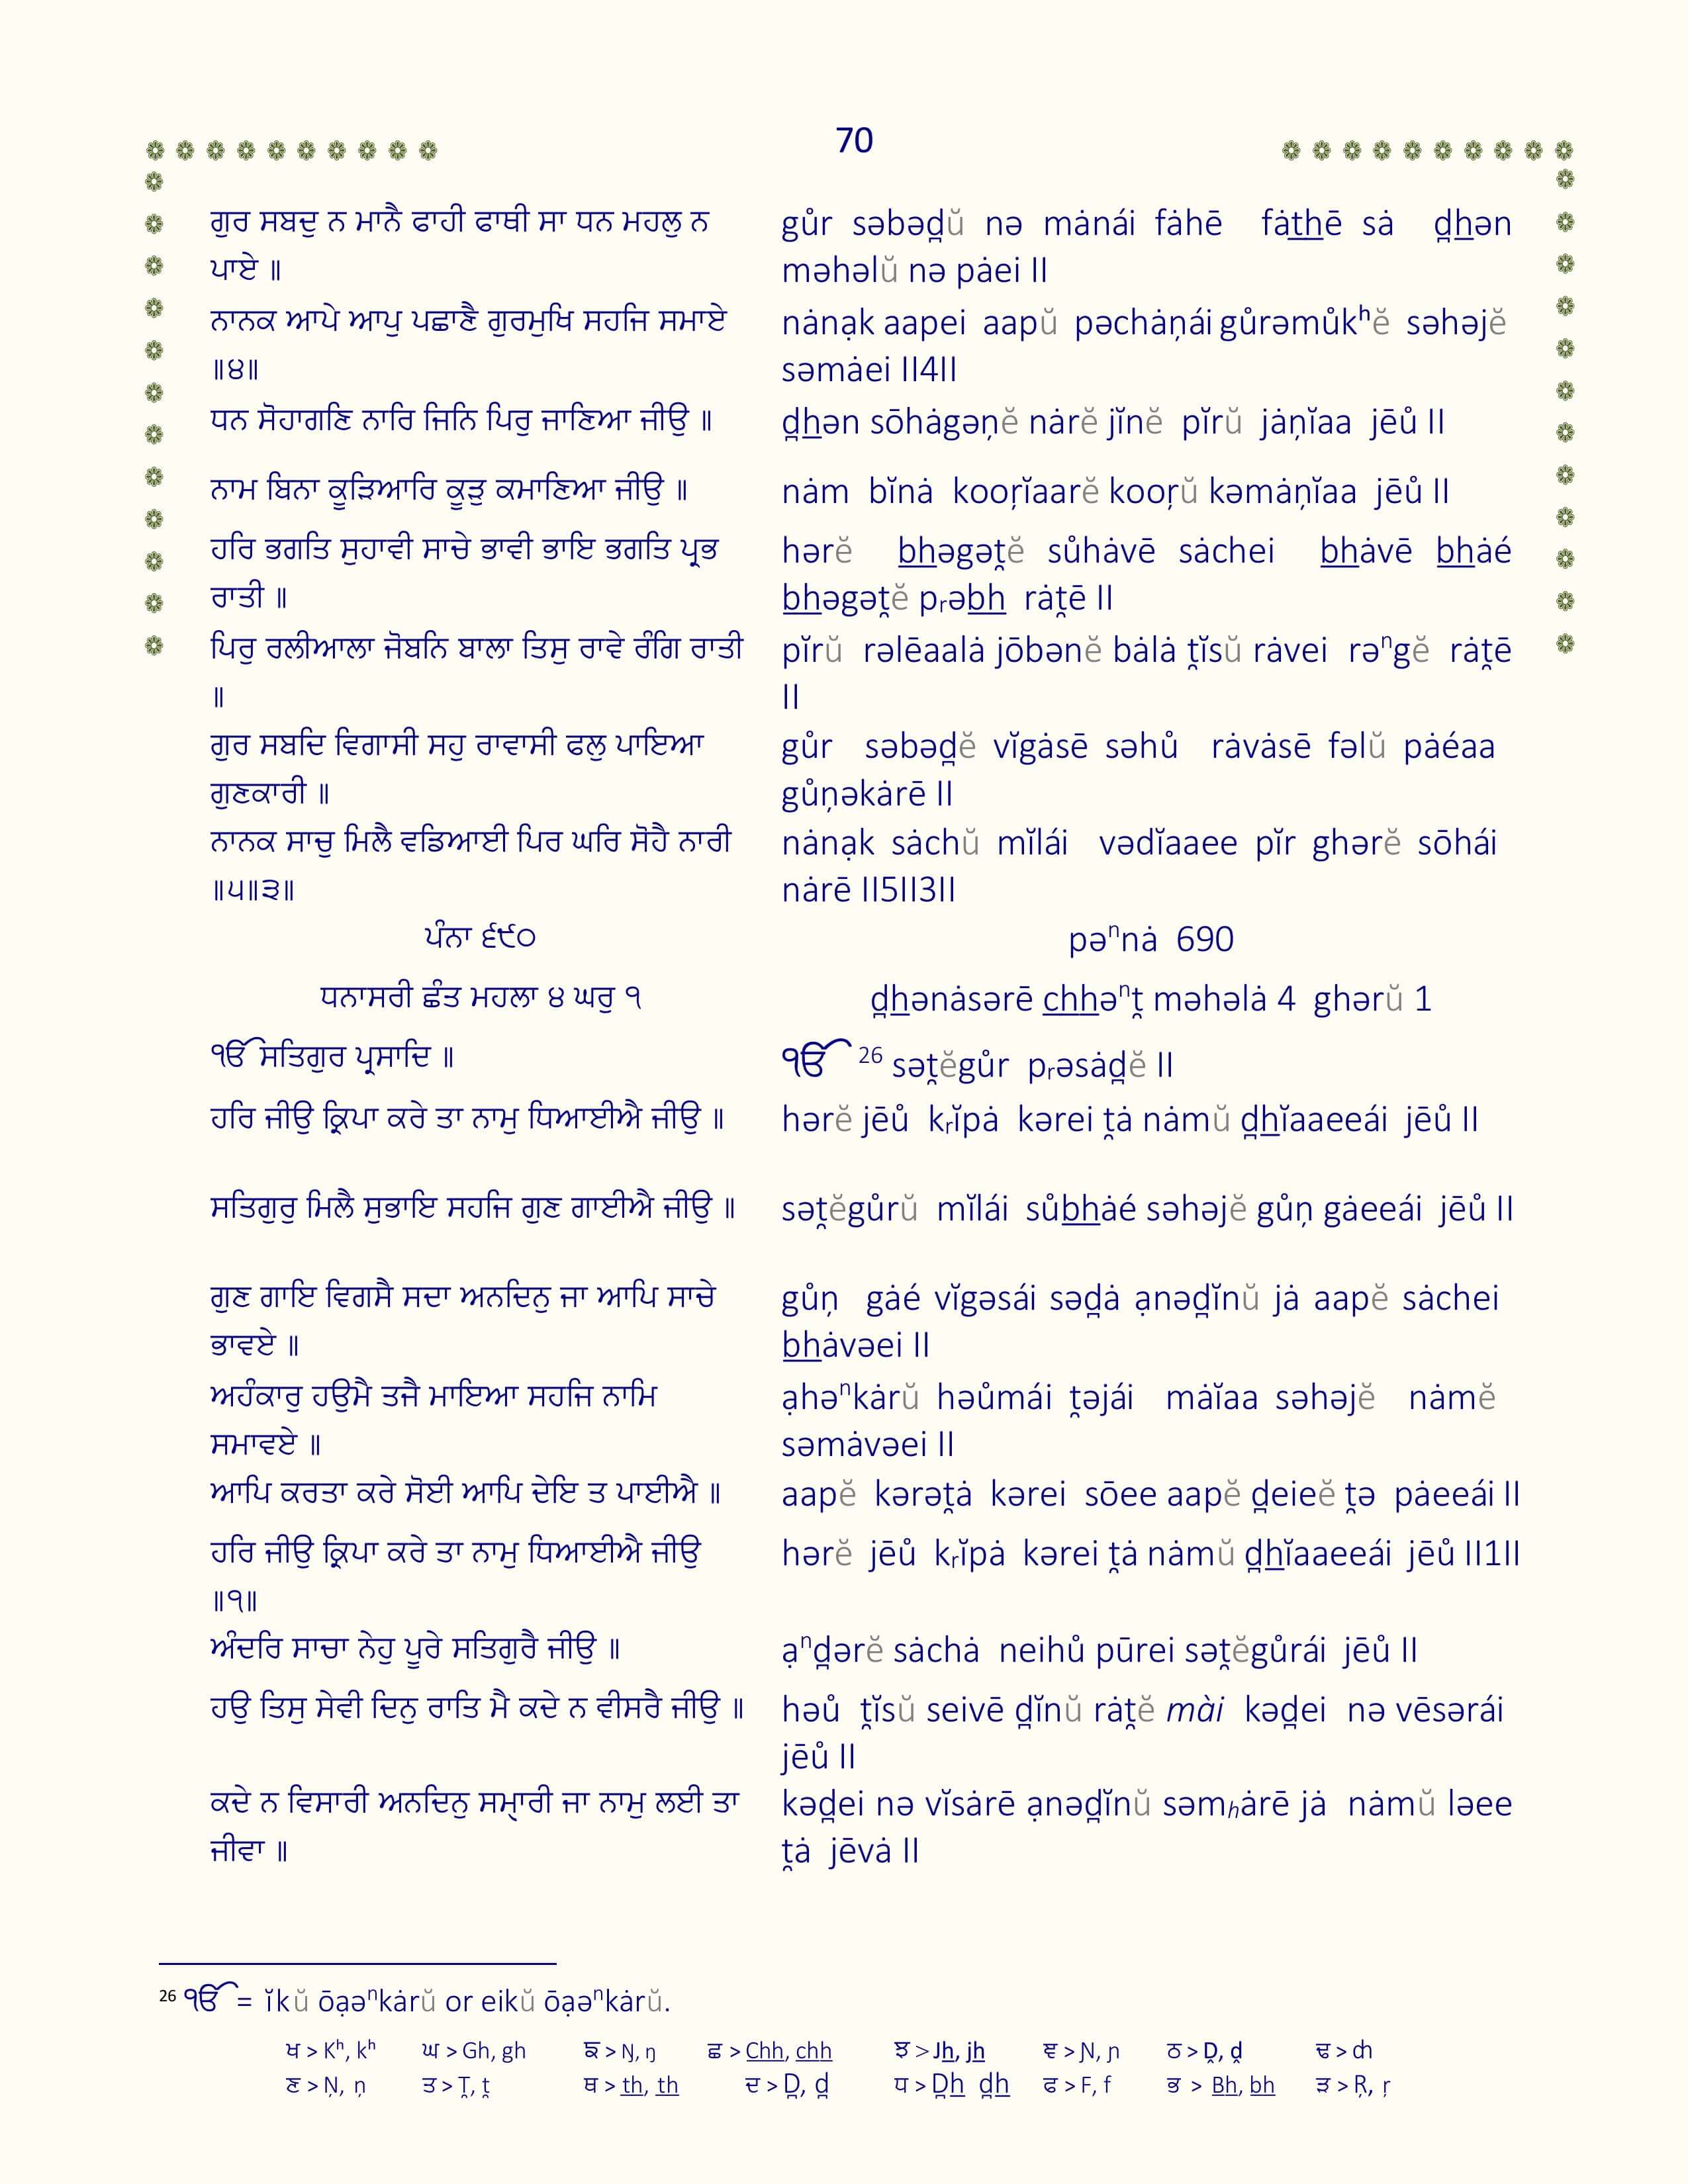 70
ਗੁਰ ਸਬਦੁ ਨ ਮਾਨੈ ਫਾਹੀ ਫਾਥੀ ਸਾ ਧਨ ਮਹਲੁ ਨ
ਪਾਏ ॥
gůr səbəd̪ŭ nə mȧnái fȧhē fȧthē sȧ d̪hən
məhəlŭ nə pȧei II
ਨਾਨਕ ਆਪੇ ਆਪੁ ਪਛਾਣੈ ਗੁਰਮੁਖਿ ਸਹਜਿ ਸਮਾਏ
॥੪॥
nȧnạk aapei aapŭ pəchȧṇái gůrəmůkʰĕ səhəjĕ
səmȧei II4II
ਧਨ ਸੋਹਾਗਣਿ ਨਾਰਿ ਜਿਨਿ ਪਿਰੁ ਜਾਣਿਆ ਜੀਉ ॥
d̪hən sōhȧgəṇĕ nȧrĕ jĭnĕ pĭrŭ jȧṇĭaa jēů II
ਨਾਮ ਬਿਨਾ ਕੂੜਿਆਰਿ ਕੂੜੁ ਕਮਾਣਿਆ ਜੀਉ ॥
nȧm bĭnȧ kooṛĭaarĕ kooṛŭ kəmȧṇĭaa jēů II
ਹਰਿ ਭਗਤਿ ਸੁਹਾਵੀ ਸਾਚੇ ਭਾਵੀ ਭਾਇ ਭਗਤਿ ਪ੍ਰਭ
ਰਾਤੀ ॥
hərĕ bhəgət̪ĕ sůhȧvē sȧchei bhȧvē bhȧé
bhəgət̪ĕ pᵣəbh rȧt̪ē II
ਪਿਰੁ ਰਲੀਆਲਾ ਜੋਬਨਿ ਬਾਲਾ ਤਿਸੁ ਰਾਵੇ ਰੰਗਿ ਰਾਤੀ
॥
pĭrŭ rəlēaalȧ jōbənĕ bȧlȧ t̪ĭsŭ rȧvei rəⁿgĕ rȧt̪ē
II
ਗੁਰ ਸਬਦਿ ਵਿਗਾਸੀ ਸਹੁ ਰਾਵਾਸੀ ਫਲੁ ਪਾਇਆ
ਗੁਣਕਾਰੀ ॥
gůr səbəd̪ĕ vĭgȧsē səhů rȧvȧsē fəlŭ pȧéaa
gůṇəkȧrē II
ਨਾਨਕ ਸਾਚੁ ਮਿਲੈ ਵਡਿਆਈ ਪਿਰ ਘਰਿ ਸੋਹੈ ਨਾਰੀ
॥੫॥੩॥
nȧnạk sȧchŭ mĭlái vədĭaaee pĭr ghərĕ sōhái
nȧrē II5II3II
ਪੰਨਾ ੬੯੦
pəⁿnȧ 690
ਧਨਾਸਰੀ ਛੰਤ ਮਹਲਾ ੪ ਘਰੁ ੧
d̪hənȧsərē chhəⁿt̪ məhəlȧ 4 ghərŭ 1
ੴ ਸਤਿਗੁਰ ਪ੍ਰਸਾਦਿ ॥
ੴ 26 sət̪ĕgůr pᵣəsȧd̪ĕ II
ਹਰਿ ਜੀਉ ਕ੍ਰਿਪਾ ਕਰੇ ਤਾ ਨਾਮੁ ਧਿਆਈਐ ਜੀਉ ॥
hərĕ jēů kᵣĭpȧ kərei t̪ȧ nȧmŭ d̪hĭaaeeái jēů II
ਸਤਿਗੁਰੁ ਮਿਲੈ ਸੁਭਾਇ ਸਹਜਿ ਗੁਣ ਗਾਈਐ ਜੀਉ ॥
sət̪ĕgůrŭ mĭlái sůbhȧé səhəjĕ gůṇ gȧeeái jēů II
ਗੁਣ ਗਾਇ ਵਿਗਸੈ ਸਦਾ ਅਨਦਿਨੁ ਜਾ ਆਪਿ ਸਾਚੇ
ਭਾਵਏ ॥
gůṇ gȧé vĭgəsái səd̪ȧ ạnəd̪ĭnŭ jȧ aapĕ sȧchei
bhȧvəei II
ਅਹੰਕਾਰੁ ਹਉਮੈ ਤਜੈ ਮਾਇਆ ਸਹਜਿ ਨਾਮਿ
ਸਮਾਵਏ ॥
ạhəⁿkȧrŭ həůmái t̪əjái mȧĭaa səhəjĕ nȧmĕ
səmȧvəei II
ਆਪਿ ਕਰਤਾ ਕਰੇ ਸੋਈ ਆਪਿ ਦੇਇ ਤ ਪਾਈਐ ॥
aapĕ kərət̪ȧ kərei sōee aapĕ d̪eieĕ t̪ə pȧeeái II
ਹਰਿ ਜੀਉ ਕ੍ਰਿਪਾ ਕਰੇ ਤਾ ਨਾਮੁ ਧਿਆਈਐ ਜੀਉ
॥੧॥
hərĕ jēů kᵣĭpȧ kərei t̪ȧ nȧmŭ d̪hĭaaeeái jēů II1II
ਅੰਦਰਿ ਸਾਚਾ ਨੇਹੁ ਪੂਰੇ ਸਤਿਗੁਰੈ ਜੀਉ ॥
ạⁿd̪ərĕ sȧchȧ neihů pūrei sət̪ĕgůrái jēů II
ਹਉ ਤਿਸੁ ਸੇਵੀ ਦਿਨੁ ਰਾਤਿ ਮੈ ਕਦੇ ਨ ਵੀਸਰੈ ਜੀਉ ॥
həů t̪ĭsŭ seivē d̪ĭnŭ rȧt̪ĕ mài kəd̪ei nə vēsərái
jēů II
ਕਦੇ ਨ ਵਿਸਾਰੀ ਅਨਦਿਨੁ ਸਮ੍ਹਾਰੀ ਜਾ ਨਾਮੁ ਲਈ ਤਾ
ਜੀਵਾ ॥
kəd̪ei nə vĭsȧrē ạnəd̪ĭnŭ səmₕȧrē jȧ nȧmŭ ləee
t̪ȧ jēvȧ II
26 ੴ = ĭkŭ ōạəⁿkȧrŭ or eikŭ ōạəⁿkȧrŭ.
ਖ > Kʰ, kʰ ਘ > Gh, gh ਙ > Ŋ, ŋ ਛ > Chh, chh ਝ > Jh, jh ਞ > Ɲ, ɲ ਠ > D̯, d̯ ਢ > ȸ
ਣ > Ṇ, ṇ ਤ > T̪, t̪ ਥ > th, th ਦ > D̪, d̪ ਧ > D̪h d̪h ਫ > F, f ਭ > Bh, bh ੜ > Ṛ, ṛ